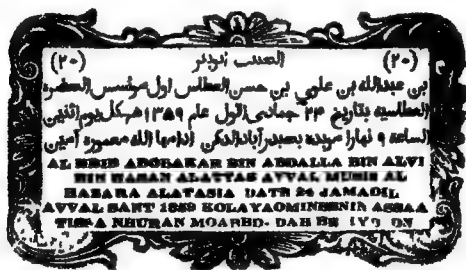 (٢٠) الحبيب ابوبكر (٢٠)
بن عبدالله بن علوي بن حسن العطاس اول مؤسس الحضرة
العطاسية بتاريخ ٢٤ جمادي الاول عام ١٣٥٩ هم كل يوم اثنين
الساعة ٩ نهارا مؤبده بحيدرآباد الدكن ادامها الله معموره آمين
AL HBIB ABOBAKAR BIN ABDALLA BIN ALVI
BIN HASAN ALATTAS AVVAL MUHIS AL
HAZARA ALATASIA DATE 24 JAMADIL
AVVAL SANT 1359 KOLAYAOMINSSNIN ASSAA
NEHURAN MOABBD- DAH BE